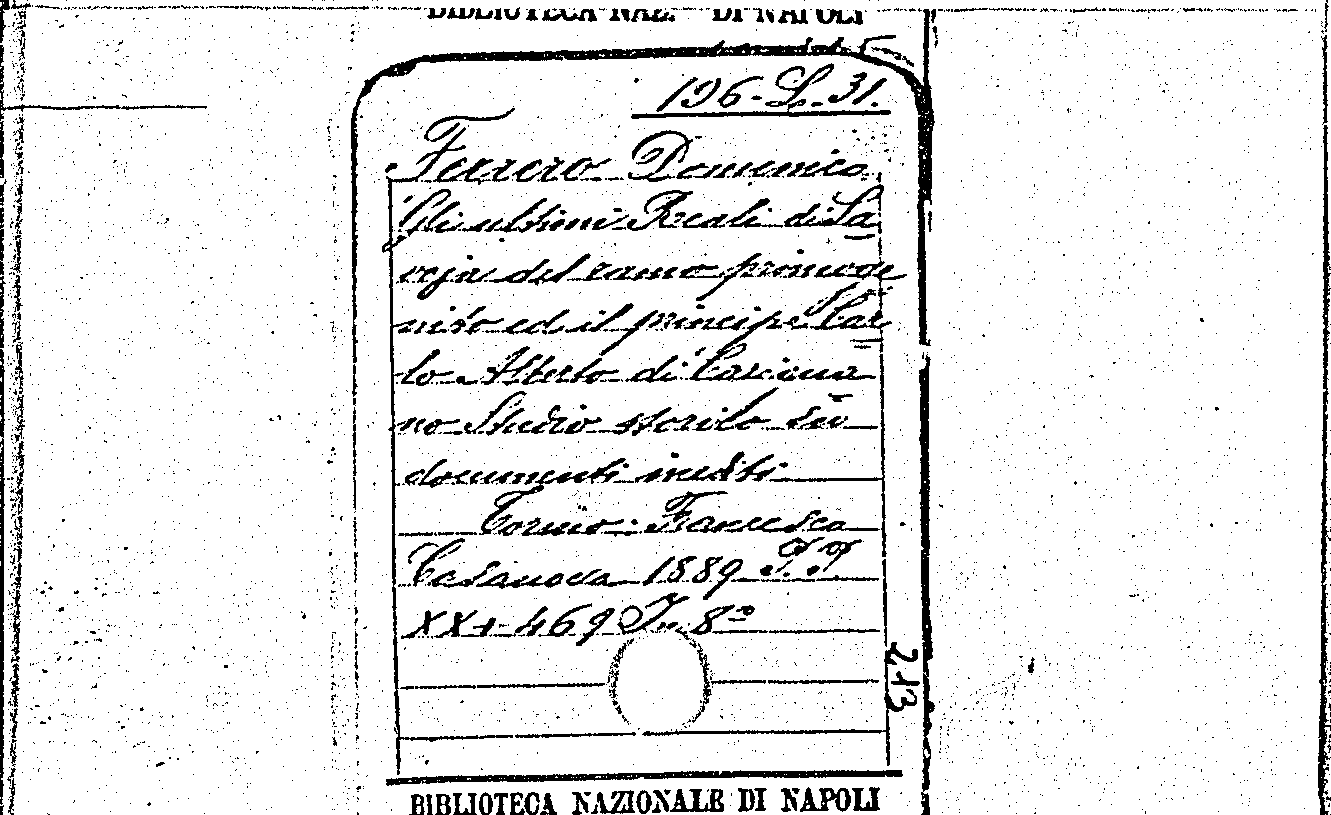 BIBLIOTECA NAZ. DI NAPOLI
196-L.31.
Ferrero Domenico
Gli ultimi Reali di Sa
voja del ramo primoge
nito ed il principe Car
lo Alberto di Carigna
no Studio storico su
documenti inediti
Torino: Francesco
Casanova 1889 T.T
XX+469 In 8º
213
BIBLIOTECA NAZIONALE DI NAPOLI